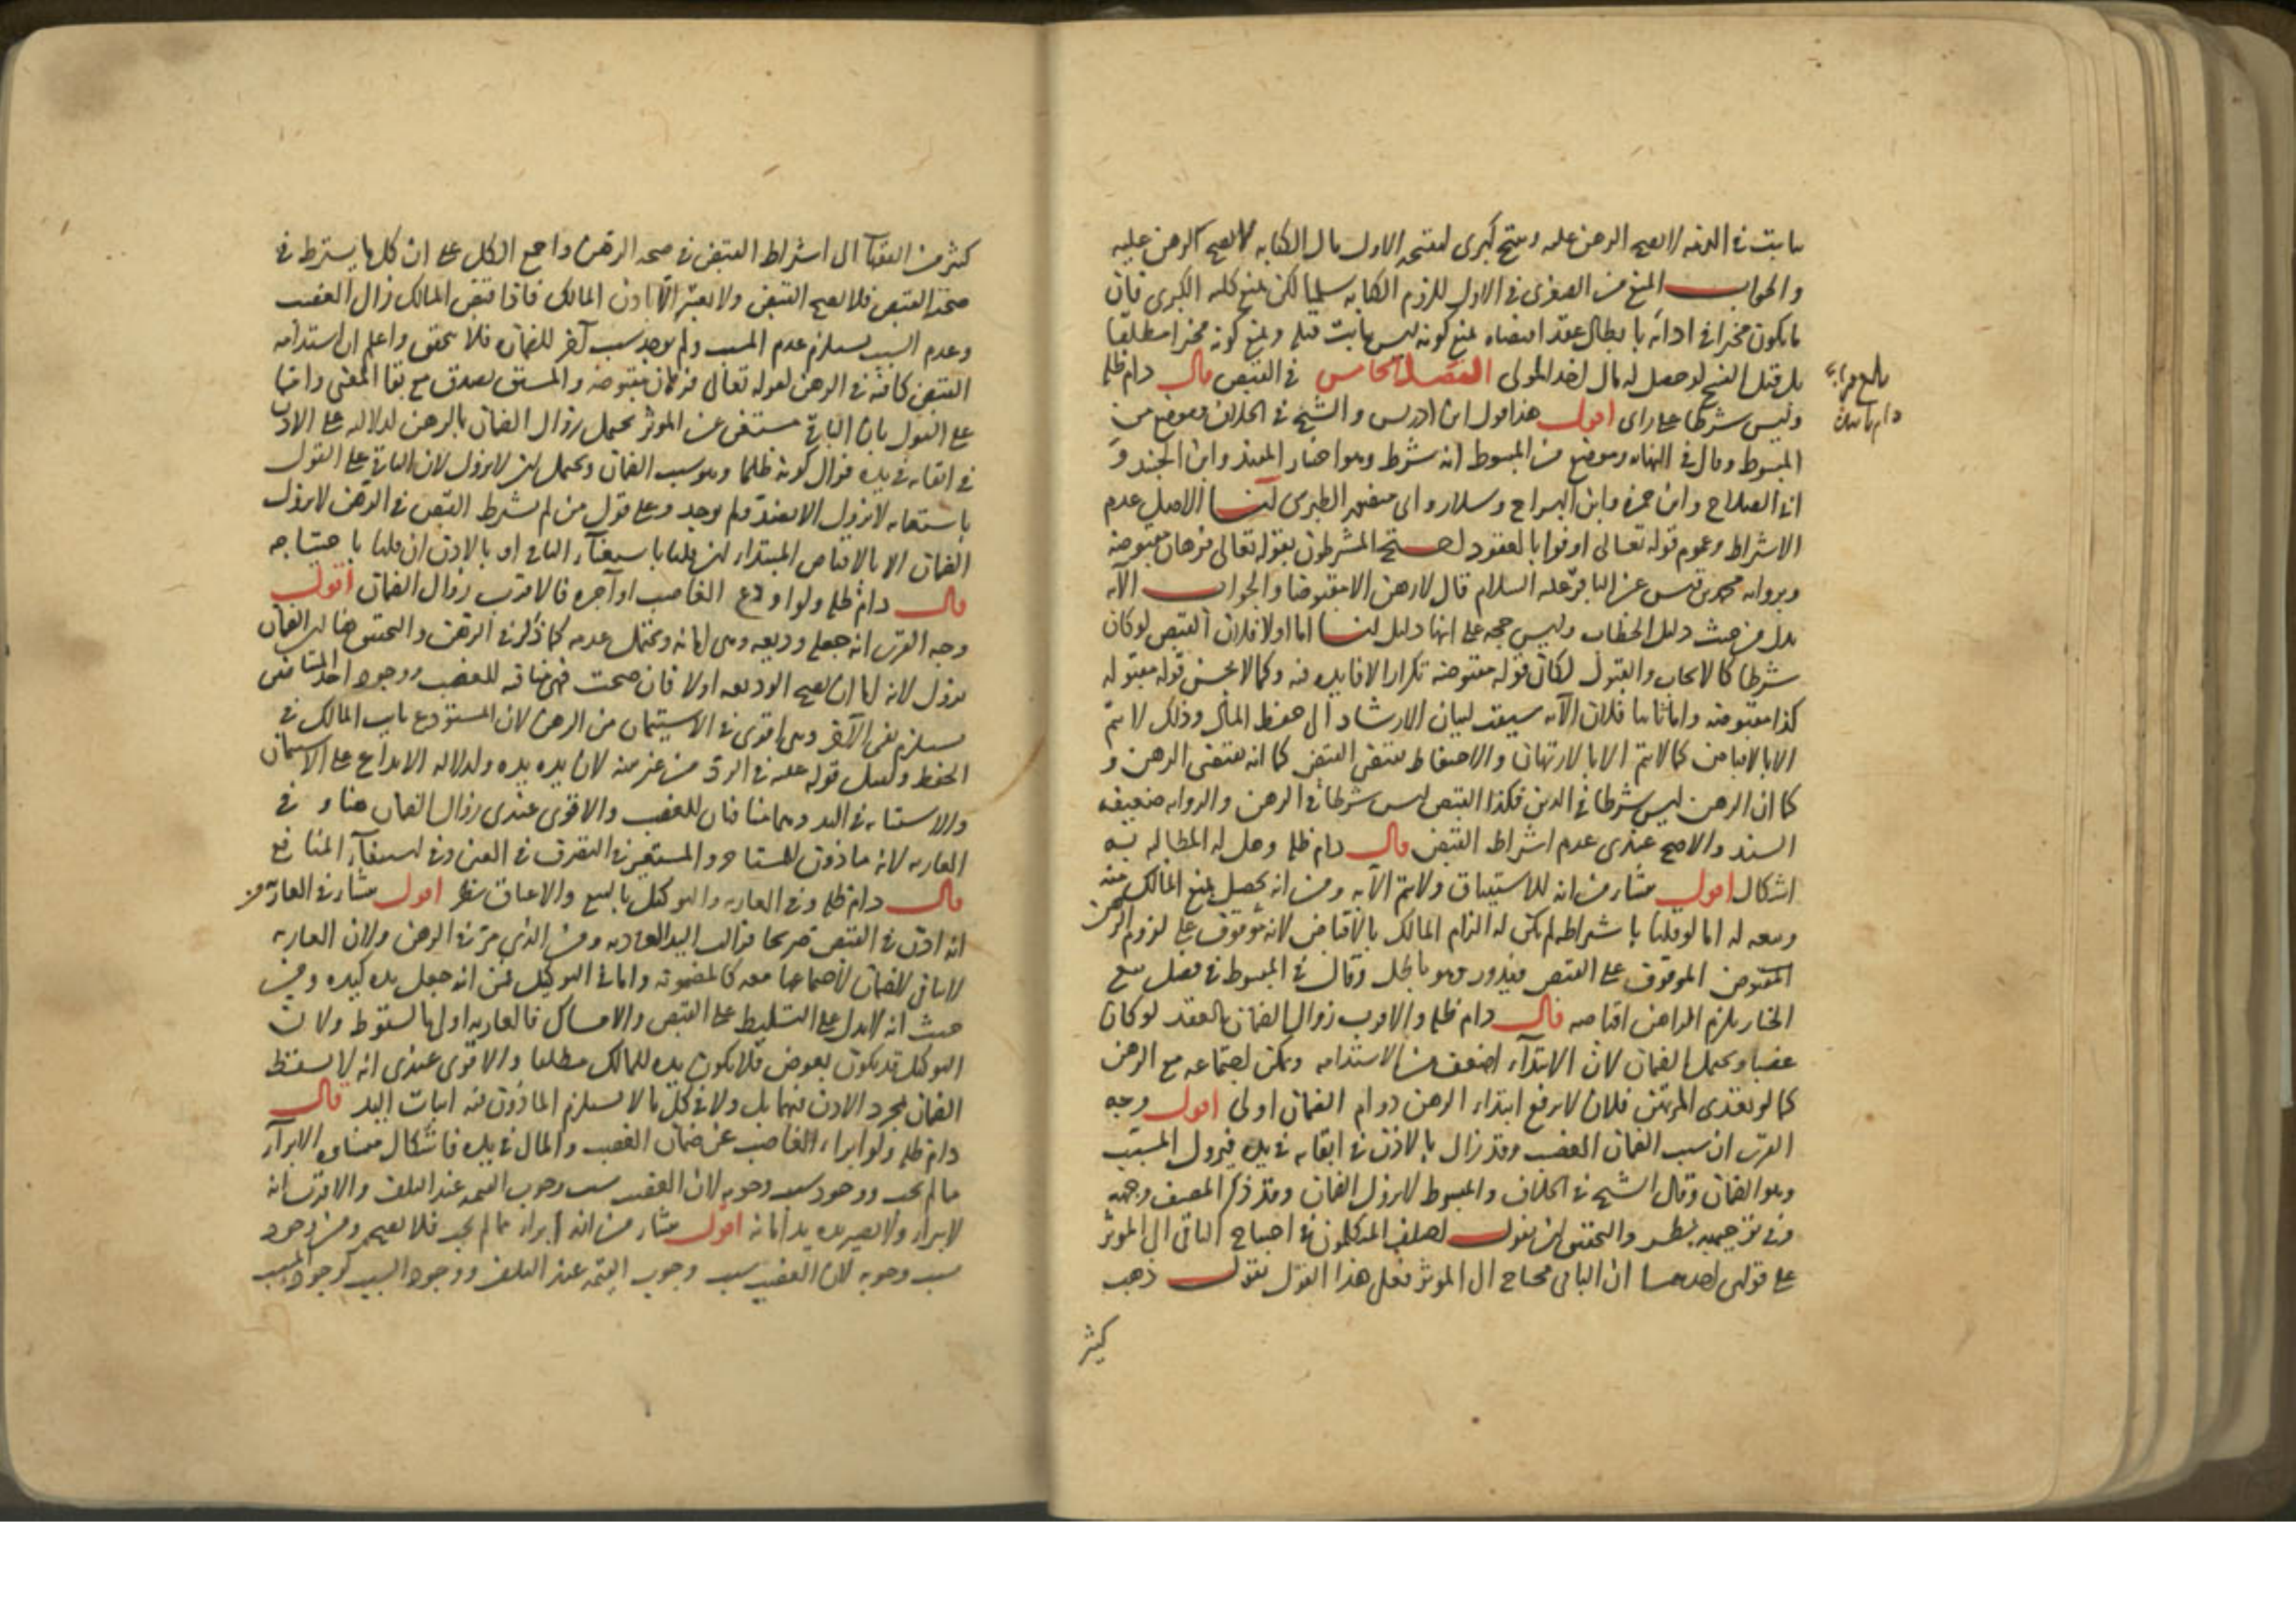 ثابت في الذمة لا يصح الرهن عليه وينتج كبرى لنتيجة الاول مال الكتابة لا يصح الرهن عليه
والجواب المنع من الصغرى في الاول للزوم الكتابة سلمنا لكن نمنع كلية الكبرى فان
ما يكون مخيرا في ادائه بابطال عقد اقتضاه نمنع كونه ليس بثابت قبله ونمنع كونه مخيرا مطلقا
بل قبل الفسخ لو حصل له مال لاخذ المولى الفصل الخامس في القبض قال دام ظله
وليس شرطا على راى اقول هذا قول ابن ادريس والشيخ في الخلاف وموضع من
المبسوط وقال في النهاية وموضع من المبسوط انه شرط وهو اختيار المفيد وابن الجنيد و
ابي الصلاح وابن حمزة وابن البراج وسلار وابي منصور الطبرسي لنا الاصل عدم
الاشتراط وعموم قوله تعالى اوفوا بالعقود احتج المشرطون بقوله تعالى فرهان مقبوضة
وبرواية محمد بن قيس عن الباقر عليه السلام قال لا رهن الا مقبوضا والجواب الآية
تدل من حيث دليل الخطاب وليس حجة على انها دليل لنا اما اولا فلان القبض لو كان
شرطا كالايجاب والقبول لكان قوله مقبوضة تكرارا لا فايدة فيه وكما لا يحسن قوله مقبولة
كذا مقبوضة واما ثانيا فلان الآية سيقت لبيان الارشاد الى حفظ المال وذلك لا يتم
الا بالاقباض كما لا يتم الا بالارتهان والاحتياط يقتضي القبض كما انه يقتضي الرهن و
كما ان الرهن ليس شرطا في الدين فكذا القبض ليس شرطا في الرهن والرواية ضعيفة
السند والاصح عندي عدم اشتراط القبض قال دام ظله وهل له المطالبة به
اشكال اقول ينشأ من انه للاستيثاق ولا يتم الا به ومن انه يحصل بمنع المالك منه
وبيعه له اما لو قلنا باشتراطه لم يكن له الزام المالك بالاقباض لانه موقوف على لزوم الرهن
المقبوض الموقوف على القبض فيدور وهو باطل وقال في المبسوط في فصل بيع
الخيار يلزم الراهن اقباضه قال دام ظله والاقرب زوال الضمان بالعقد لو كان
غصبا ويحتمل الضمان لان الابتداء اضعف من الاستدامة ويمكن اجتماعه مع الرهن
كما لو تعدى المرتهن فلان لا يرفع ابتداء الرهن دوام الضمان اولى اقول وجه
القرب ان سبب الضمان الغصب وقد زال بالاذن في ابقائه في يده فيزول المسبب
وهو الضمان وقال الشيخ في الخلاف والمبسوط لا يزول الضمان وقد ذكر المصنف وجهه
وفي توجيهه نظر والتحقيق ان نقول اختلف المتكلمون في احتياج الباقي الى المؤثر
على قولين احدهما ان الباقي محتاج الى المؤثر فعلى هذا القول نقول ذهب
كثير
كثير من الفقهآ الى اشتراط القبض في صحة الرهن واجمع الكل على ان كل ما يشترط في
صحته القبض فلا يصح القبض ولا يعتبر الا باذن المالك فاذا قبض المالك زال الغصب
وعدم السبب يستلزم عدم المسبب ولم يوجد سبب آخر للضمان فلا يتحقق واعلم ان استدامة
القبض كافية في الرهن لقوله تعالى فرهان مقبوضة والمشتق يصدق مع بقا المعنى واما
على القول بان الباقي مستغن عن المؤثر يحتمل زوال الضمان بالرهن لدلالته على الاذن
في ابقائه في يده فزال كونه ظلما وهو سبب الضمان ويحتمل ان لا يزول لان الباقي على القول
باستغنائه لا يزول الا بضده ولم يوجد وعلى قول من لم يشترط القبض في الرهن لا يزول
الضمان الا بالاقباض المبتداء ان قلنا باستغنآء الباقي او بالاذن ان قلنا باحتياجه
قال دام ظله ولو اودع الغاصب او آجره فالاقرب زوال الضمان اقول
وجه القرب انه جعله وديعة وهي امانة ويحتمل عدمه كما ذكر في الرهن والتحقيق هنا ان الضمان
يزول لانه اما ان يصح الوديعة اولا فان صحت فهي منافية للغصب ووجود احد المتنافيين
يستلزم نفي الآخر وهي اقوى في الاستيمان من الرهن لان المستودع نايب المالك في
الحفظ ويقبل قوله عليه في الرد من غير بينة لان يده يده ولدلالة الايداع على الاستيمان
والاستنابة في اليد وهما منافيان للغصب والاقوى عندي زوال الضمان هنا و في
العارية لانه ماذون للمستاجر والمستعير في التصرف في العين وفي استيفآء المنافع
قال دام ظله وفي العارية والتوكيل بالبيع والاعتاق نظر اقول ينشأ في العارية من
انه اذن في القبض صريحا فزالت اليد العادية ومن الذي مر في الرهن ولان العارية
لا تنافي الضمان لاجتماعها معه كالمضمونة واما في التوكيل فمن انه جعل يده كيده ومن
حيث انه لا يدل على التسليط على القبض والامساك فالعارية اولى بالسقوط ولان
التوكيل قد يكون بعوض فلا يكون يده للمالك مطلقا والاقوى عندي انه لا يسقط
الضمان بمجرد الاذن فيهما بل ولا في كل ما لا يستلزم الماذون فيه اثبات اليد قال
دام ظله ولو ابراء الغاصب عن ضمان الغصب والمال في يده فاشكال منشاه الابرآء
مما لم يجب ووجود سبب وجوبه لان الغصب سبب وجوب القيمة عند التلف والاقرب انه
لا يبراء ولا يصير يده يد امانة اقول ينشأ من انه ابراء مما لم يجب فلا يصح ومن وجود
سبب وجوبه لان الغصب سبب وجوب القيمة عند التلف ووجود السبب كوجود المسبب